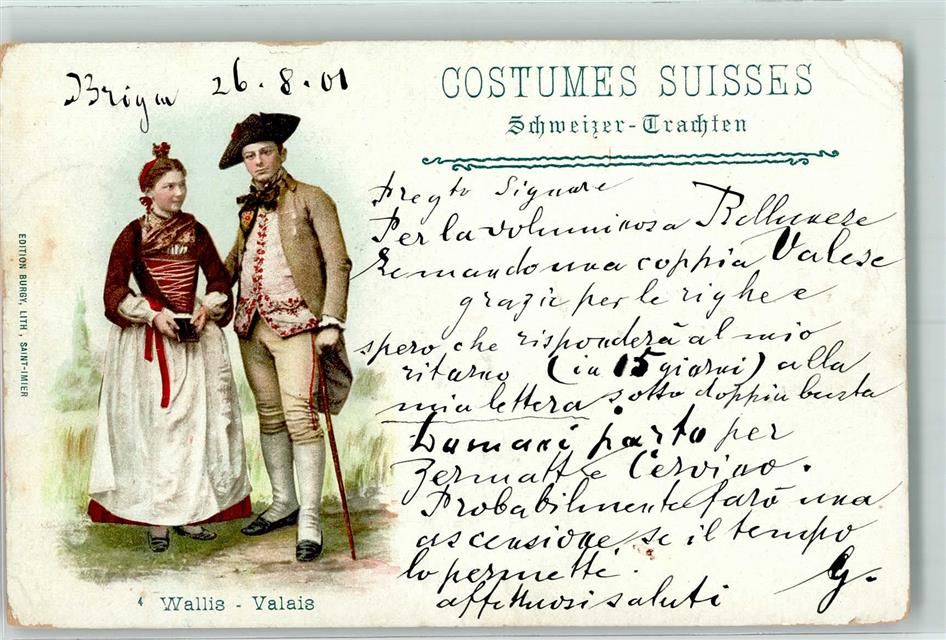 Brigue 26.8.01
COSTUMES SUISSES
Schweizer-Trachten
Pregto Signore
Per la voluminosa Bellunese
Le mando una coppia Valese
grazie per le righe e
spero che risponderà al mio
ritorno (in 15 giorni) alla
mia lettera sotto doppia busta
Domani parto per
Zermatt e Cervino.
Probabilmente farò una
ascensione se il tempo
lo permette.
affettuosi saluti G.
4 Wallis - Valais
EDITION BURGY, LITH, SAINT-IMIER